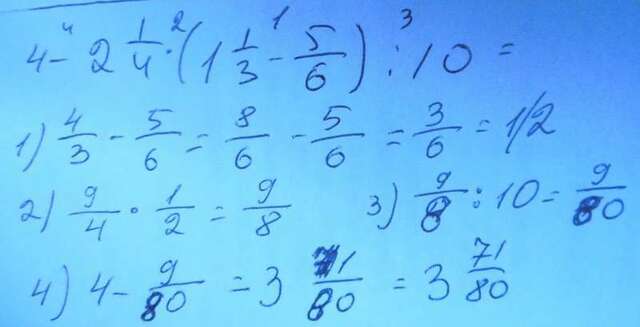 4 - 2 1/4 · (1 1/3 - 5/6) : 10 =
1) 4/3 - 5/6 = 8/6 - 5/6 = 3/6 = 1/2
2) 9/4 · 1/2 = 9/8 3) 9/8 : 10 = 9/80
4) 4 - 9/80 = 3 71/80 = 3 71/80